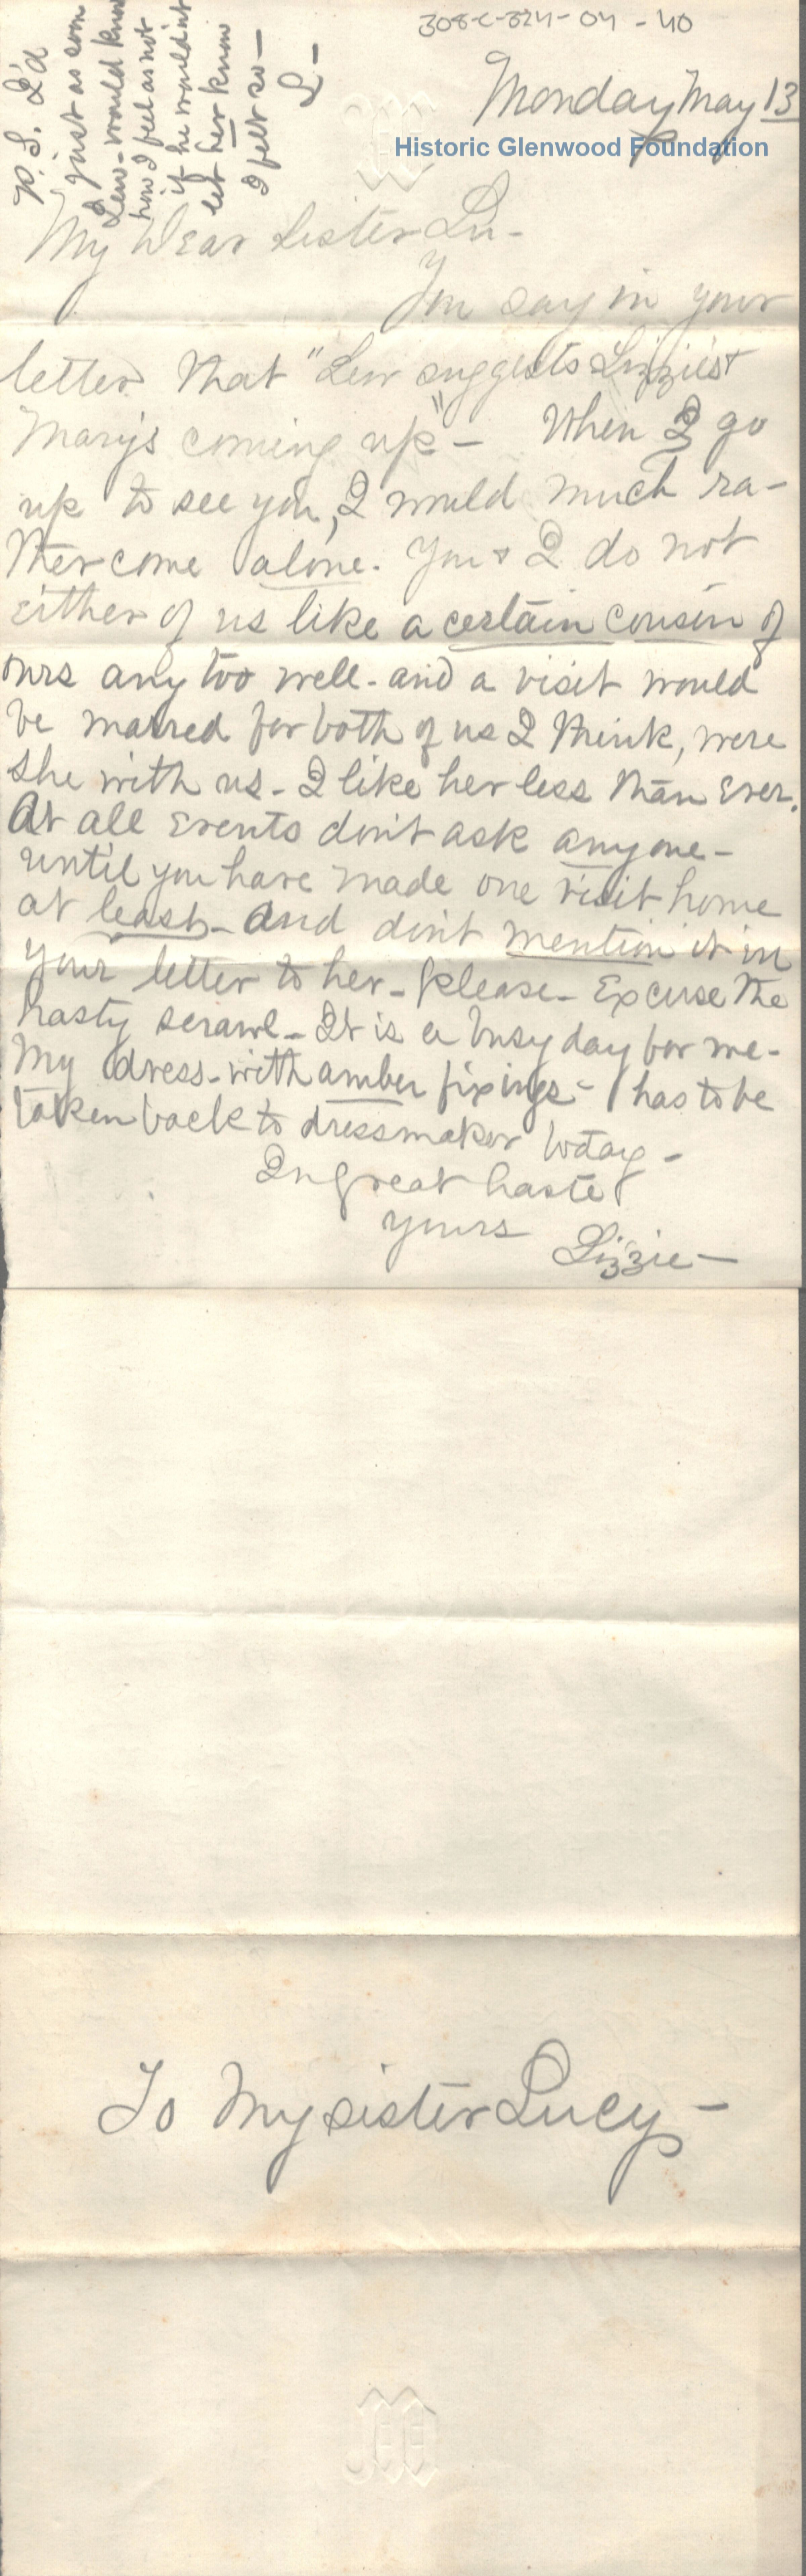 308-C-824-04-40
Monday May 13
Historic Glenwood Foundation
My Dear Sister Lu-
You say in your
letter that "Lew suggests Lizzie's &
Mary's coming up" - When I go
up to see you, I would much ra-
ther come alone. You & I do not
either of us like a certain cousin of
ours any too well - and a visit would
be marred for both of us I think, were
she with us - I like her less than ever.
At all events don't ask anyone -
until you have made one visit home
at least - And don't mention it in
your letter to her - please - Excuse the
hasty scrawl - It is a busy day for me -
My dress - with amber fixings - has to be
taken back to dressmaker today -
In great haste
yours
Lizzie -
P.S. I'd
just as soon
Lew - would know
how I feel as not
if he wouldn't
let her know
I felt so -
L -
To My sister Lucy -
M